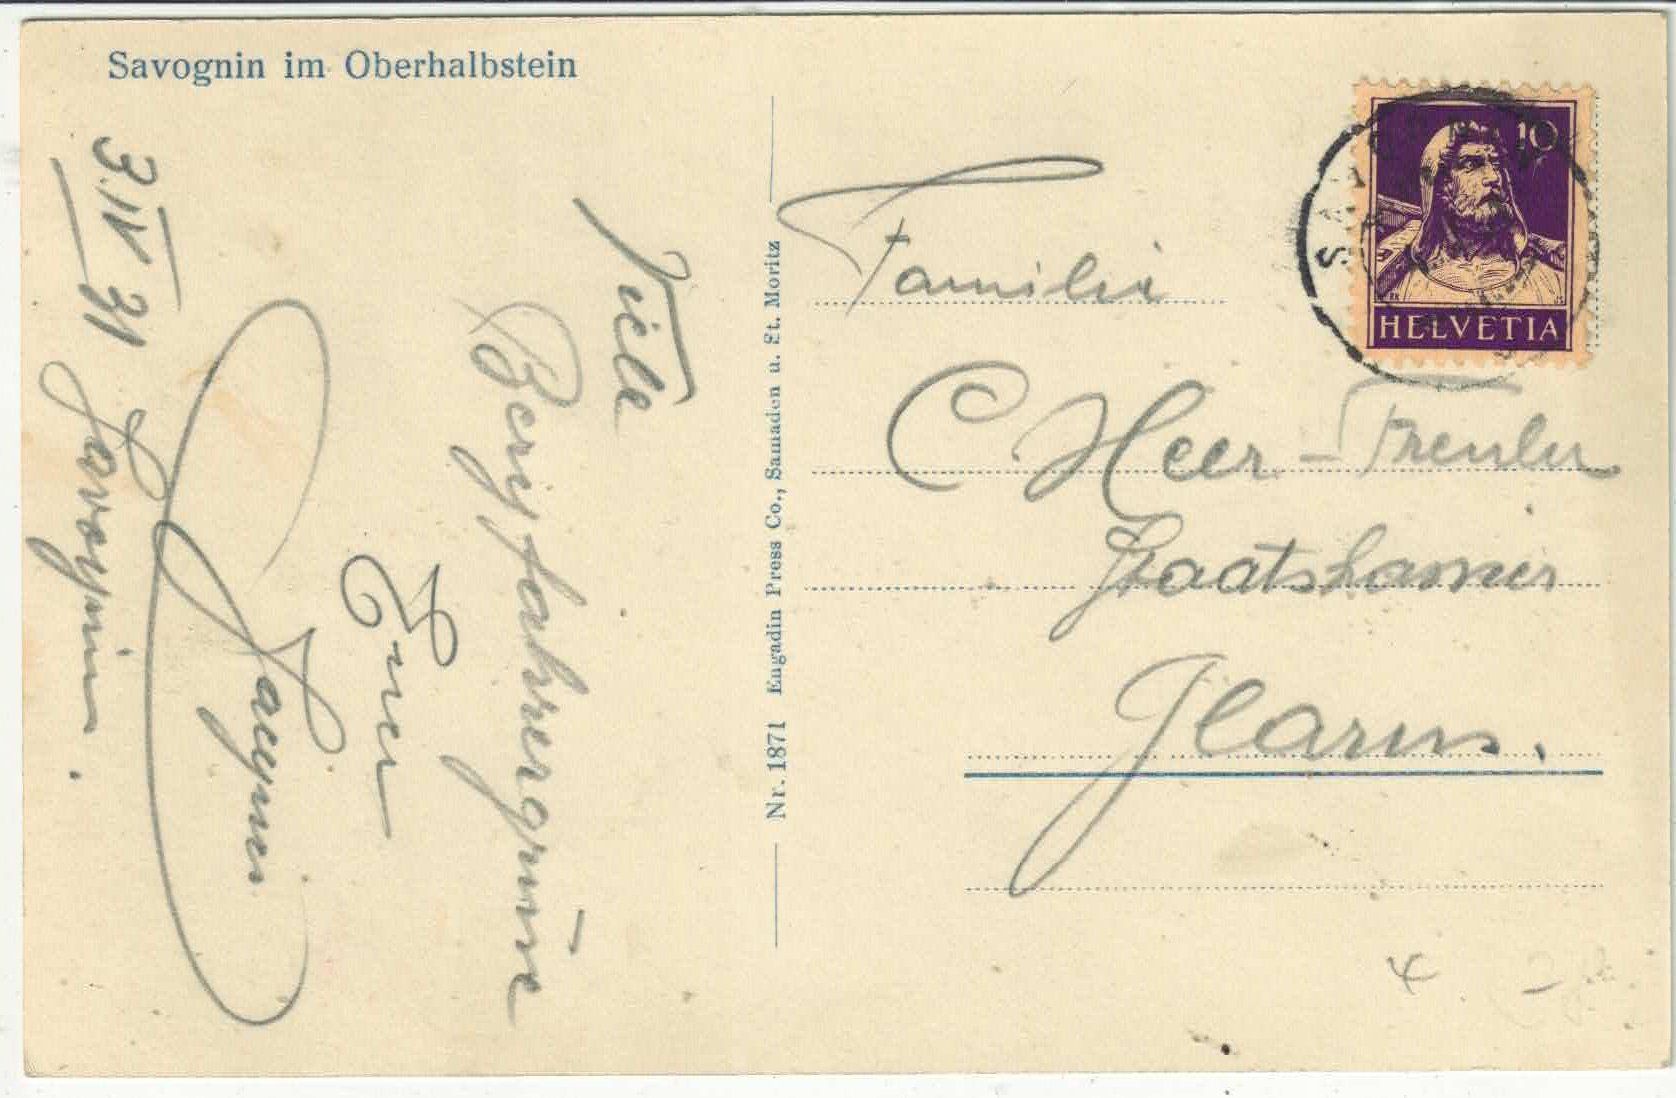 Savognin im Oberhalbstein
3.IV 31 Savognin.
Viele
Bergfahrergrüsse
Euer
Nr. 1871 Engadin Press Co., Samaden u. St. Moritz
10
HELVETIA
Familie
C Heer-Freuler
Glarus.